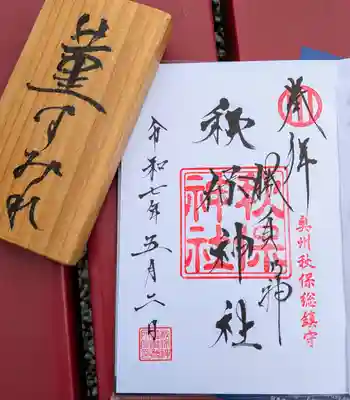 菫すみれ
奉拝
奥州秋保総鎮守
勝負の神
秋保神社
秋保神社
令和七年五月六日